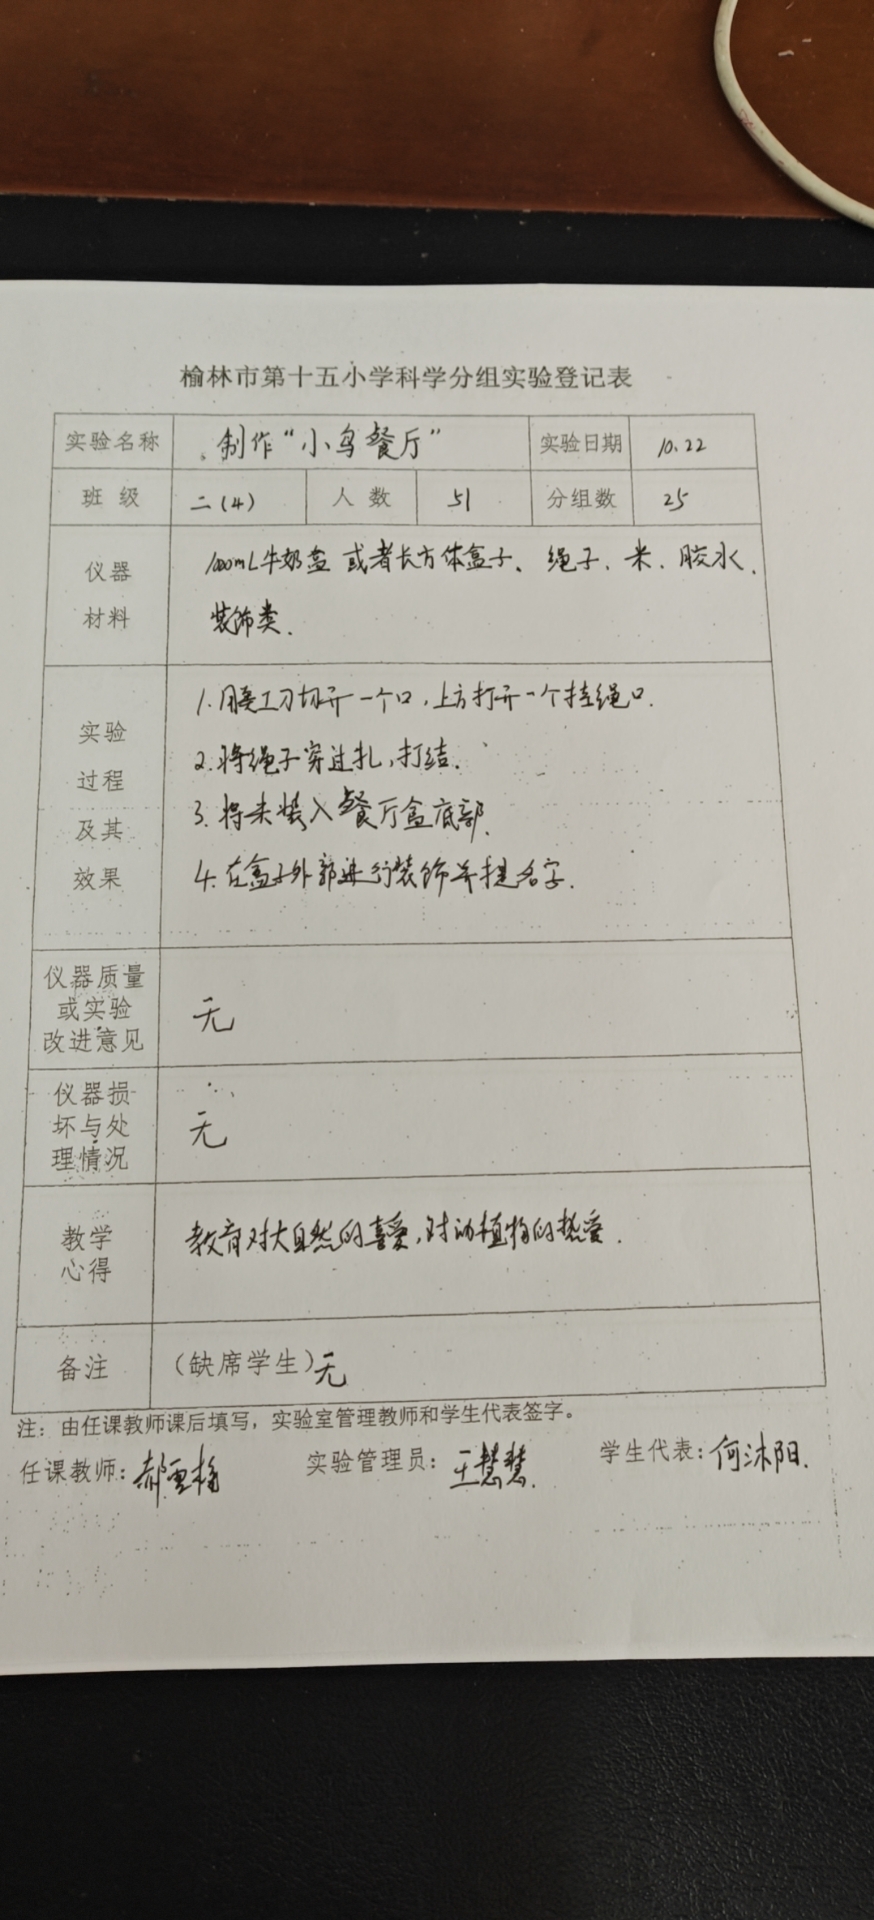 榆林市第十五小学科学分组实验登记表
实验名称 制作“小鸟餐厅” 实验日期 10.22
班级 二(4) 人数 51 分组数 25
仪器材料 1000mL牛奶盒或者长方体盒子、绳子、米、胶水、
装饰类.
实验过程及其效果
1.用美工刀切开一个口,上方打开一个挂绳口.
2.将绳子穿过扎,打结.
3.将米装入餐厅盒底部.
4.在盒子外部进行装饰并提名字.
仪器质量或实验改进意见 无
仪器损坏与处理情况 无
教学心得 教育对大自然的喜爱,对动植物的热爱.
备注 (缺席学生)无
注:由任课教师课后填写,实验室管理教师和学生代表签字。
任课教师: 实验管理员:王慧慧. 学生代表:何沐阳.